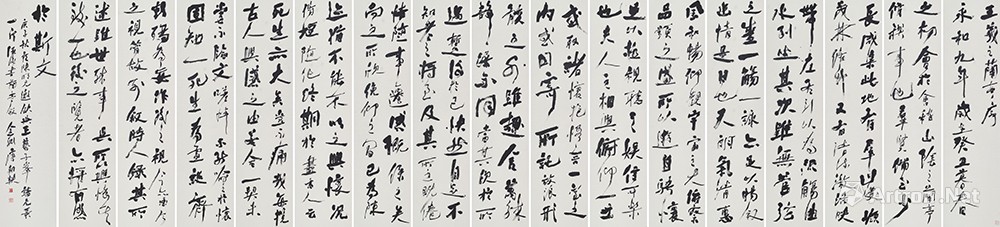 王羲之蘭亭序
永和九年歲在癸丑暮春
之初會於會稽山陰之蘭亭
修禊事也群賢畢至少
長咸集此地有崇山峻嶺
茂林修竹又有清流激湍映
帶左右引以為流觴曲
水列坐其次雖無管弦
之盛一觴一詠亦足以暢敘
幽情是日也天朗氣清惠
風和暢仰觀宇宙之大俯察
品類之盛所以遊目騁懷
足以極視聽之娛信可樂
也夫人之相與俯仰一世
或取諸懷抱悟言一室之
內或因寄所託放浪形
骸之外雖趣舍萬殊
靜躁不同當其欣於所
遇暫得於己快然自足不
知老之將至及其所之既倦
情隨事遷感慨係之矣
向之所欣俯仰之間已為陳
迹猶不能不以之興懷況
修短隨化終期於盡古人云
死生亦大矣豈不痛哉每攬
古人興感之由若合一契未
嘗不臨文嗟悼不能喻之於懷
固知一死生為虛誕齊
彭殤為妄作後之視今亦由今
之視昔悲夫故列敘時人錄其
述雖世殊事異所以興懷其
致一也後之覽者亦將有感
於斯文